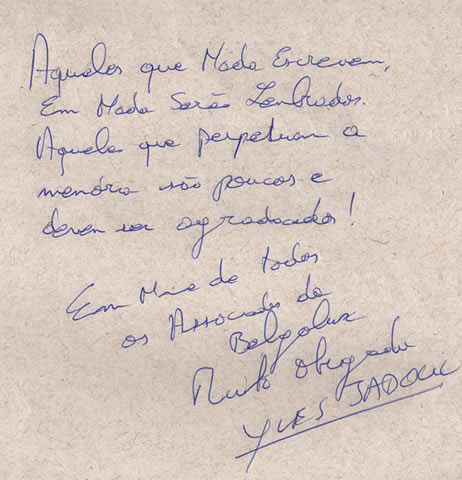 Aqueles que Nada Escrevem,
Em Nada Serão Lenbrados.
Aqueles que perpetuam a
memória são poucos e
devem ser agradecidos!
Em de todos
os Associados da
Belgalux
Muito Obrigado
YVES JADOUL